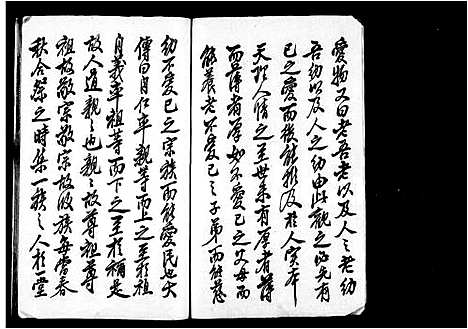 愛物又曰老吾老以及人之老幼
吾幼以及人之幼由此觀之必先有
已之愛而後能推及人宗本
天於人情之至世未有厚者薄
而薄者厚如不愛已之父母而
能養老不愛已之子弟而能慈
幼不愛已之宗族而能愛民也大
傳曰自仁率親等而上之至於祖
自義率祖等而下之至於禰是
故人道親々也親々故尊祖尊
祖故敬宗敬宗故收族每當春
秋合祭之時集一族之人於堂